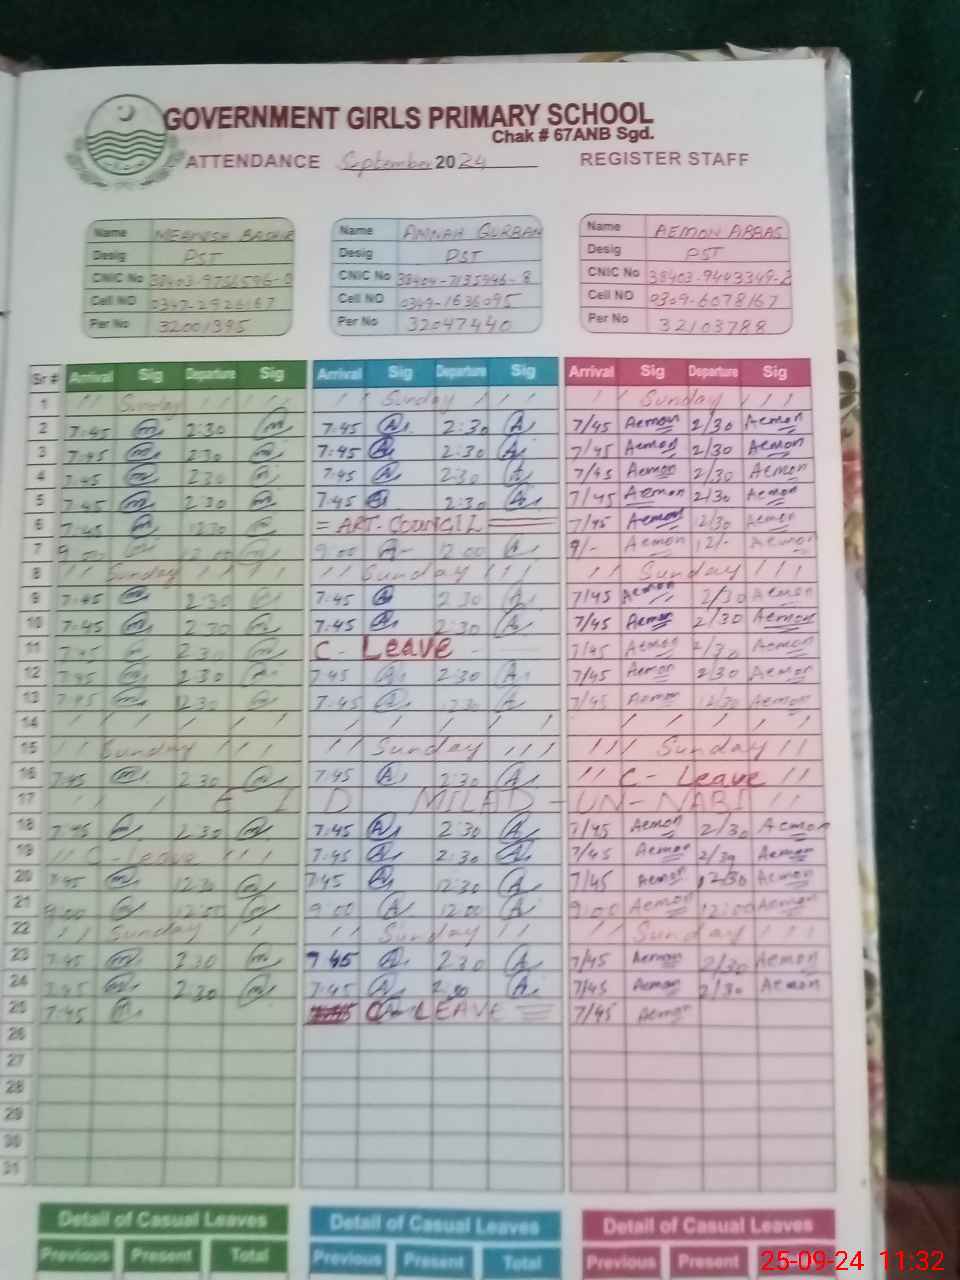 GOVERNMENT GIRLS PRIMARY SCHOOL
Chak # 67ANB Sgd.
ATTENDANCE September 2024 REGISTER STAFF
Name MEHVISH BASHIR Name AMNAH QURBAN Name AEMON ABBAS
Desig PST Desig PST Desig PST
CNIC No CNIC No CNIC No
Cell NO 0347-2926167 Cell NO 0349-1636095 Cell NO 0309-6078167
Per No 32001395 Per No 32047440 Per No 32103788
Sr # Arrival Sig Departure Sig Arrival Sig Departure Sig Arrival Sig Departure Sig
1 Sunday Sunday Sunday
2 7:45 m 2:30 m 7:45 A 2:30 A 7/45 Aemon 2/30 Aemon
3 7:45 m 2:30 m 7:45 A 2:30 A 7/45 Aemon 2/30 Aemon
4 7:45 m 2:30 m 7:45 A 2:30 A 7/45 Aemon 2/30 Aemon
5 7:45 m 2:30 m 7:45 A 2:30 A 7/45 Aemon 2/30 Aemon
6 7:45 m 12:30 = ART-COUNCIL 7/45 Aemon 12/30 Aemon
7 9:00 12:00 9:00 A 12:00 A 9/- Aemon 12/- Aemon
8 Sunday Sunday Sunday
9 7:45 m 2:30 7:45 A 2:30 A 7/45 Aemon 2/30 Aemon
10 7:45 m 2:30 m 7:45 A 2:30 A 7/45 Aemon 2/30 Aemon
11 7:45 2:30 m C- Leave 7/45 Aemon 2/30 Aemon
12 7:45 m 2:30 m 7:45 A 2:30 A 7/45 Aemon 2/30 Aemon
13 7:45 m 12:30 7:45 A 12:30 A 7/45 Aemon 12/30 Aemon
14
15 Sunday Sunday Sunday
16 7:45 m 2:30 m 7:45 A 2:30 A C- Leave
17 EID MILAD-UN-NABI
18 7:45 m 2:30 m 7:45 A 2:30 A 7/45 Aemon 2/30 Aemon
19 C- Leave 7:45 A 2:30 A 7/45 Aemon 2/30 Aemon
20 7:45 m 12:30 m 7:45 A 12:30 A 7/45 Aemon 12/30 Aemon
21 9:00 12:00 9:00 A 12:00 A 9:00 Aemon 12:00 Aemon
22 Sunday Sunday Sunday
23 7:45 m 2:30 m 7:45 A 2:30 A 7/45 Aemon 2/30 Aemon
24 7:45 m 2:30 m 7:45 A 2:30 A 7/45 Aemon 2/30 Aemon
25 7:45 C- LEAVE 7/45 Aemon
26
27
28
29
30
31
Detail of Casual Leaves Detail of Casual Leaves Detail of Casual Leaves
Previous Present Total Previous Present Total Previous Present Total
25-09-24 11:32